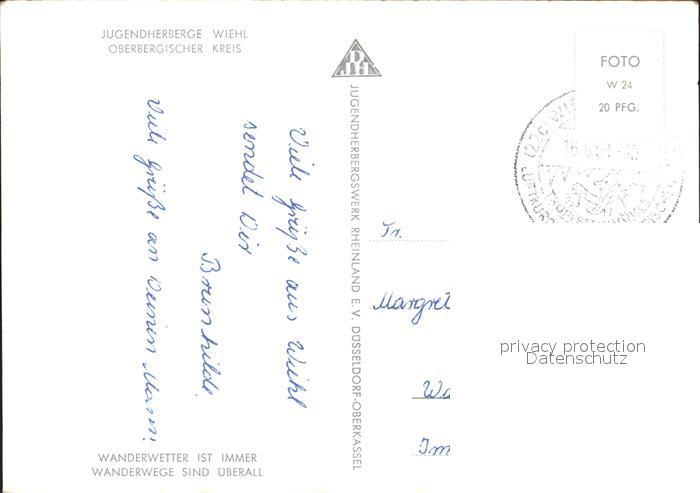 JUGENDHERBERGE WIEHL
OBERBERGISCHER KREIS
Viele Grüße aus Wiehl
sendet Dir
Brunhilde.
Viele Grüße an Deinen Mann!
WANDERWETTER IST IMMER
WANDERWEGE SIND ÜBERALL
DJH
JUGENDHERBERGSWERK RHEINLAND E.V. DÜSSELDORF-OBERKASSEL
FOTO
W 24
20 PFG.
(22c) WI
LUFTKURO
Fr.
Margret
Wa
Im
privacy protection
Datenschutz